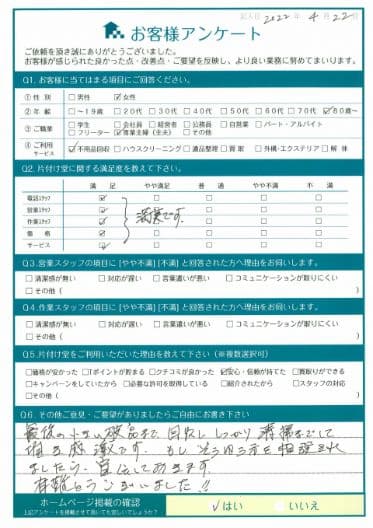 記入日 2022年4月22日
お客様アンケート
ご依頼を頂き誠にありがとうございました。
お客様が感じられた良かった点・改善点・ご要望を反映し、より良い業務に努めてまいります。
Q1.お客様に当てはまる項目にご回答ください。
①性別 □男性 ☑女性
②年齢 □～19歳 □20代 □30代 □40代 □50代 □60代 □70代 ☑80歳～
③ご職業 □学生 □会社員 □経営者 □公務員 □自営業 □パート・アルバイト
□フリーター ☑専業主婦(主夫) □その他
④ご利用サービス ☑不用品回収 □ハウスクリーニング □遺品整理 □買取 □外構・エクステリア □解体
Q2.片付け堂に関する満足度を教えて下さい。
満足 やや満足 普通 やや不満 不満
電話スタッフ ☑
営業スタッフ ☑
作業スタッフ ☑ 満足です。
価格 ☑
サービス ☑
Q3.営業スタッフの項目に[やや不満][不満]と回答された方へ理由をお伺いします。
□清潔感が無い □対応が遅い □言葉遣いが悪い □コミュニケーションが取りにくい
□その他(
Q4.作業スタッフの項目に[やや不満][不満]と回答された方へ理由をお伺いします。
□清潔感が無い □対応が遅い □言葉遣いが悪い □コミュニケーションが取りにくい
□その他(
Q5.片付け堂をご利用いただいた理由を教えて下さい(※複数選択可)
□価格が良かった □Tポイントが貯まる □クチコミが良かった ☑安心・信頼が持てた □買取りができる
□キャンペーンをしていたから □必要な許可を取得している □紹介されたから □スタッフの対応
□その他(
Q6.その他ご意見・ご要望がありましたらご自由にお書き下さい
最後の小さい破品まで回収し しっかり清掃までして
感激です。 もし
ましたら、宣伝しておきます。
有難とうございました!!
ホームページ掲載の確認
上記アンケートを掲載させて頂いても宜しいでしょうか？
☑はい □いいえ